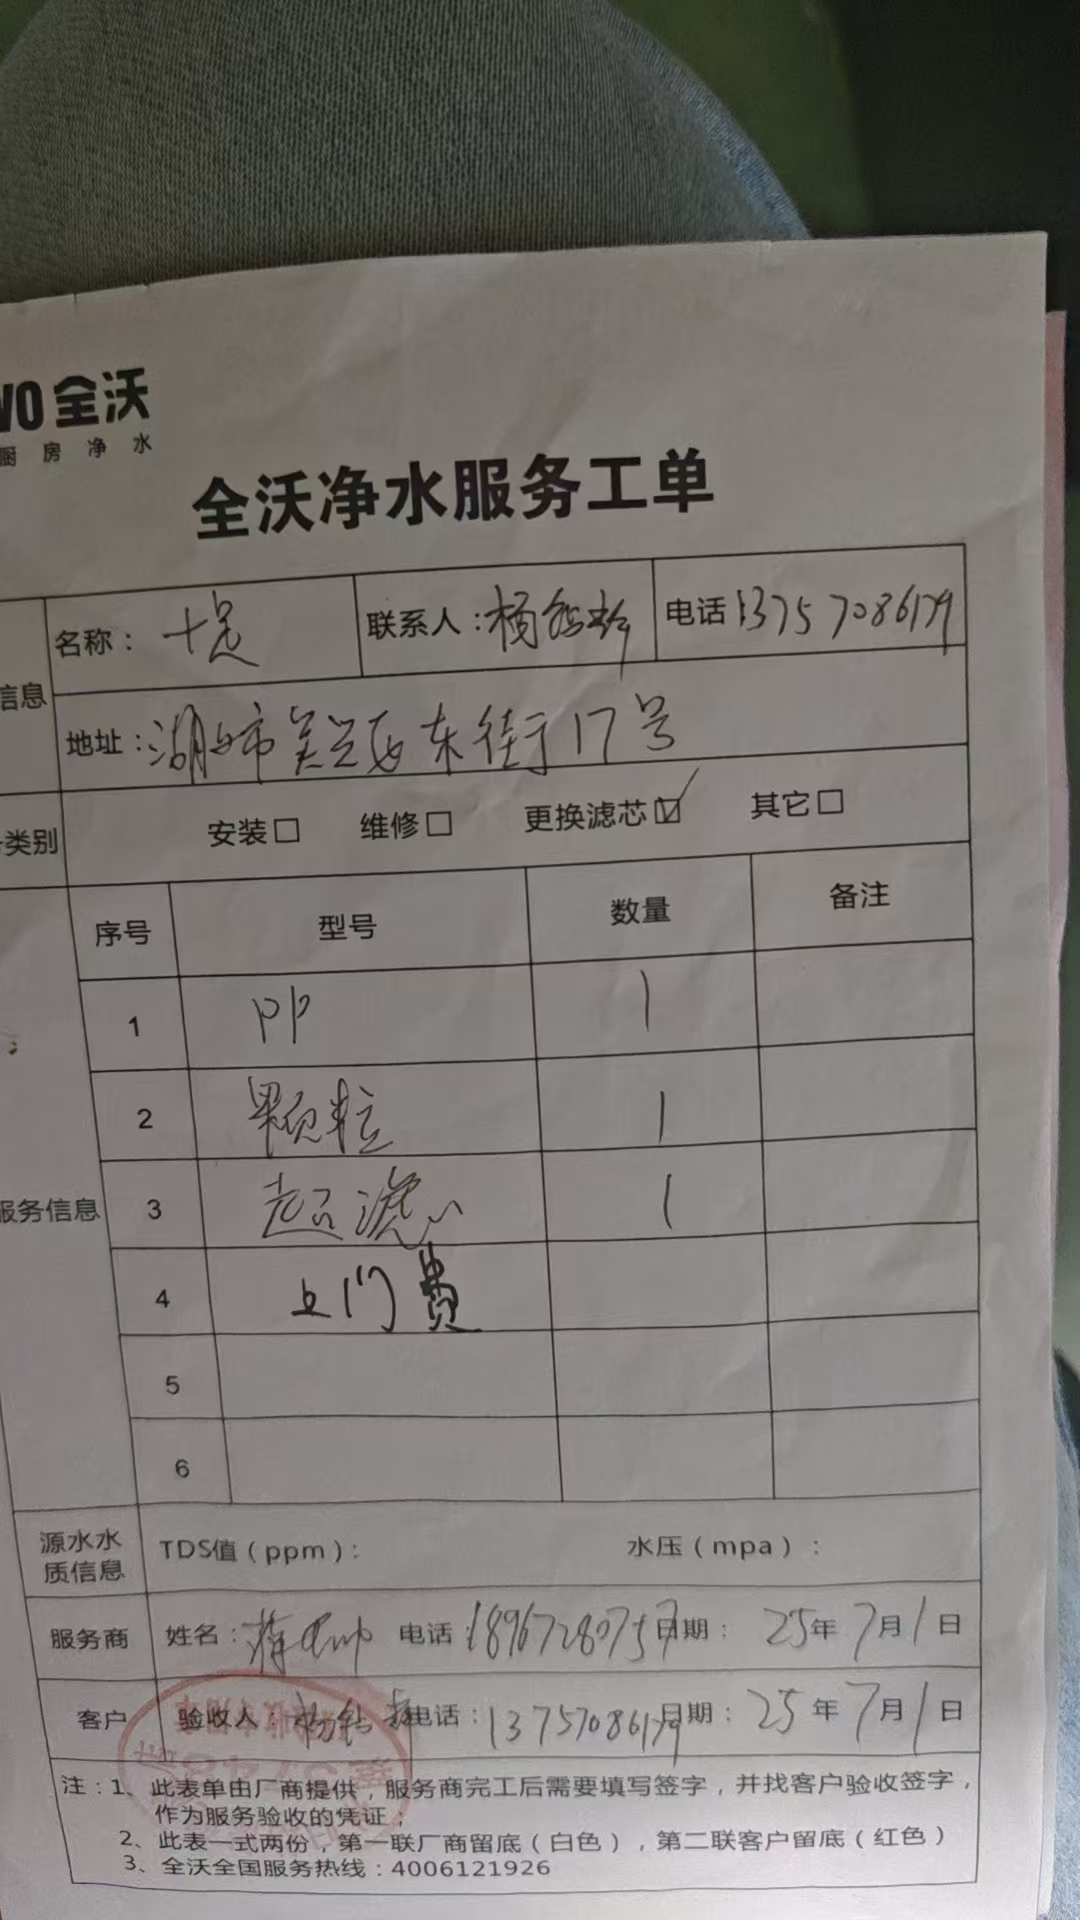 VO全沃
厨房净水
全沃净水服务工单
信息 名称: 十足 联系人: 杨 电话 13757086179
地址: 湖州市吴兴区东街17号
类别 安装□ 维修□ 更换滤芯☑ 其它□
序号 型号 数量 备注
1 PP 1
2 颗粒 1
服务信息 3 超滤 1
4 上门费
5
6
源水水质信息 TDS值(ppm): 水压(mpa):
服务商 姓名: 电话: 18967280757 日期: 25年7月1日
客户 验收人: 杨 电话: 13757086179 日期: 25年7月1日
注:1、此表单由厂商提供,服务商完工后需要填写签字,并找客户验收签字,
作为服务验收的凭证;
2、此表一式两份,第一联厂商留底(白色),第二联客户留底(红色)
3、全沃全国服务热线:4006121926